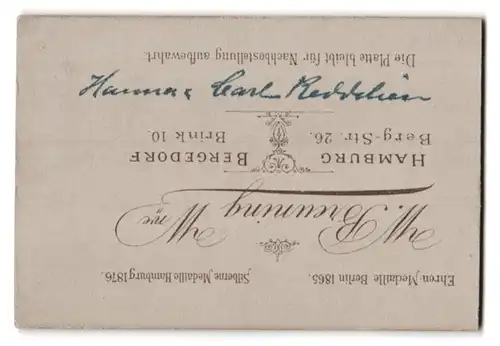 Ehren Medaille Berlin 1865.
Silberne Medaille Hamburg 1876.
W. Breuning Wwe
HAMBURG
Berg-Str. 26.
BERGEDORF
Brink 10.
Hanna & Carl Reddelien
Die Platte bleibt für Nachbestellung aufbewahrt.